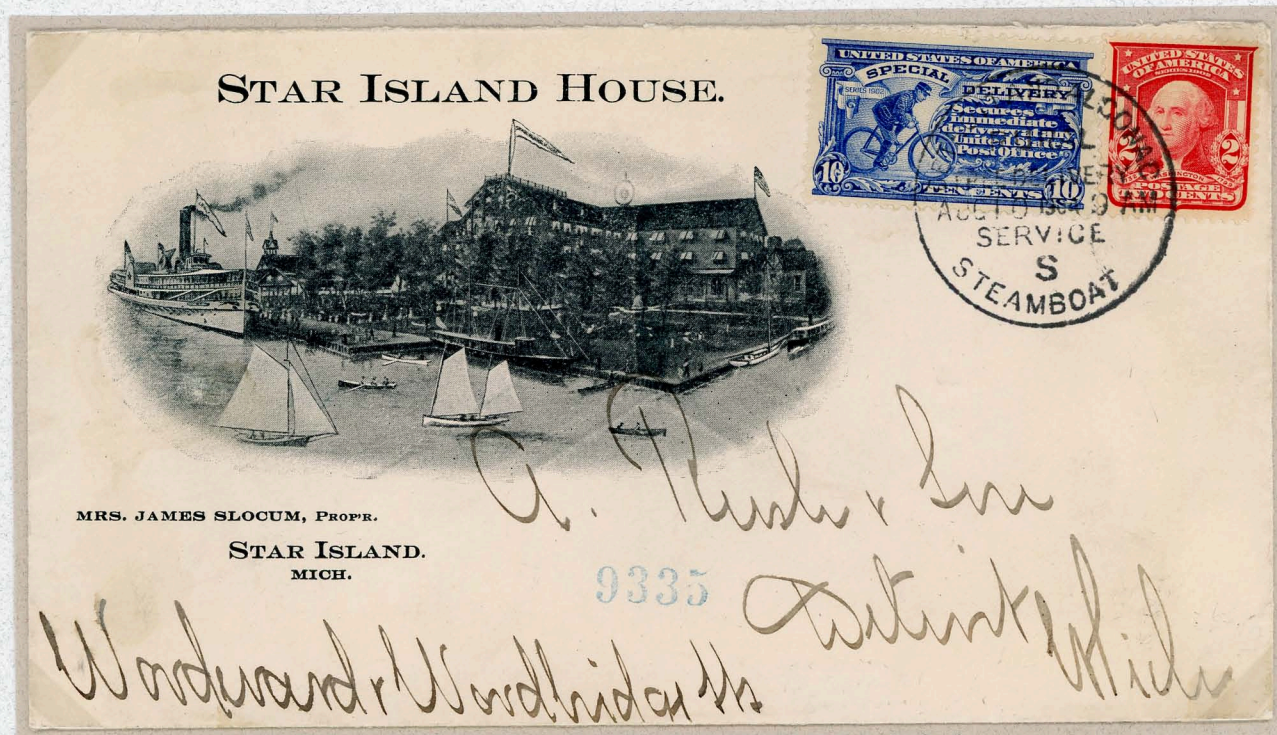 STAR ISLAND HOUSE.
UNITED STATES OF AMERICA
SPECIAL
DELIVERY
SERIES 1902
Secures
immediate
delivery at any
United States
Post Office
10 TEN CENTS 10
UNITED STATES
OF AMERICA
SERIES 1902
2 2
POSTAGE
TWO CENTS
ALGONAC
9 AM
SERVICE
S
STEAMBOAT
MRS. JAMES SLOCUM, PROP'R.
STAR ISLAND.
MICH.
A. Rush & Son
9335
Detroit
Mich
Woodward & Woodbridge Sts